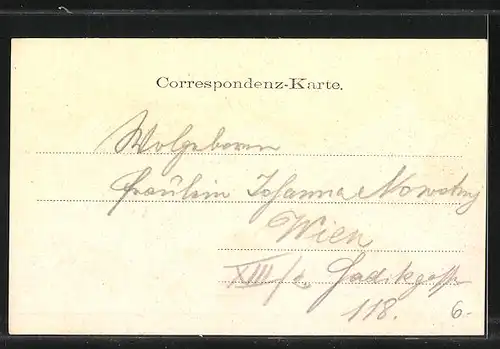 Correspondenz-Karte.
Wolgeboren
Fräulein Johanna Nowotny
Wien
XIII/c. Hadikgasse
118.
6.-